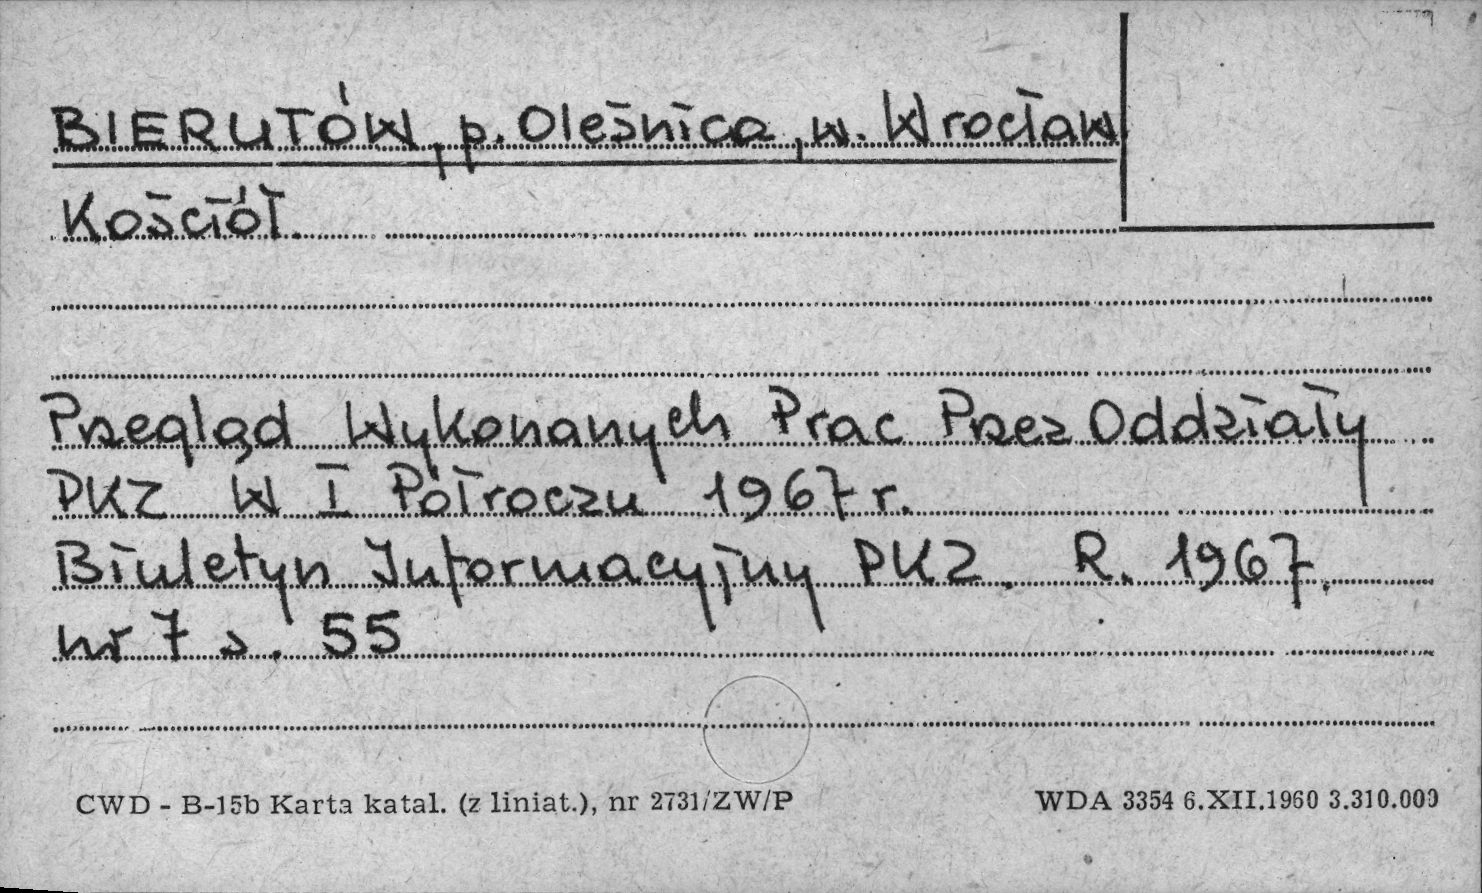 BIERUTÓW, p. Oleśnica, w. Wrocław
Kościół.
Przegląd Wykonanych Prac Przez Oddziały
PKZ W I Półroczu 1967 r.
Biuletyn Informacyjny PKZ. R. 1967.
nr 7 s. 55
CWD - B-15b Karta katal. (z liniat.), nr 2731/ZW/P
WDA 3354 6.XII.1960 3.310.000